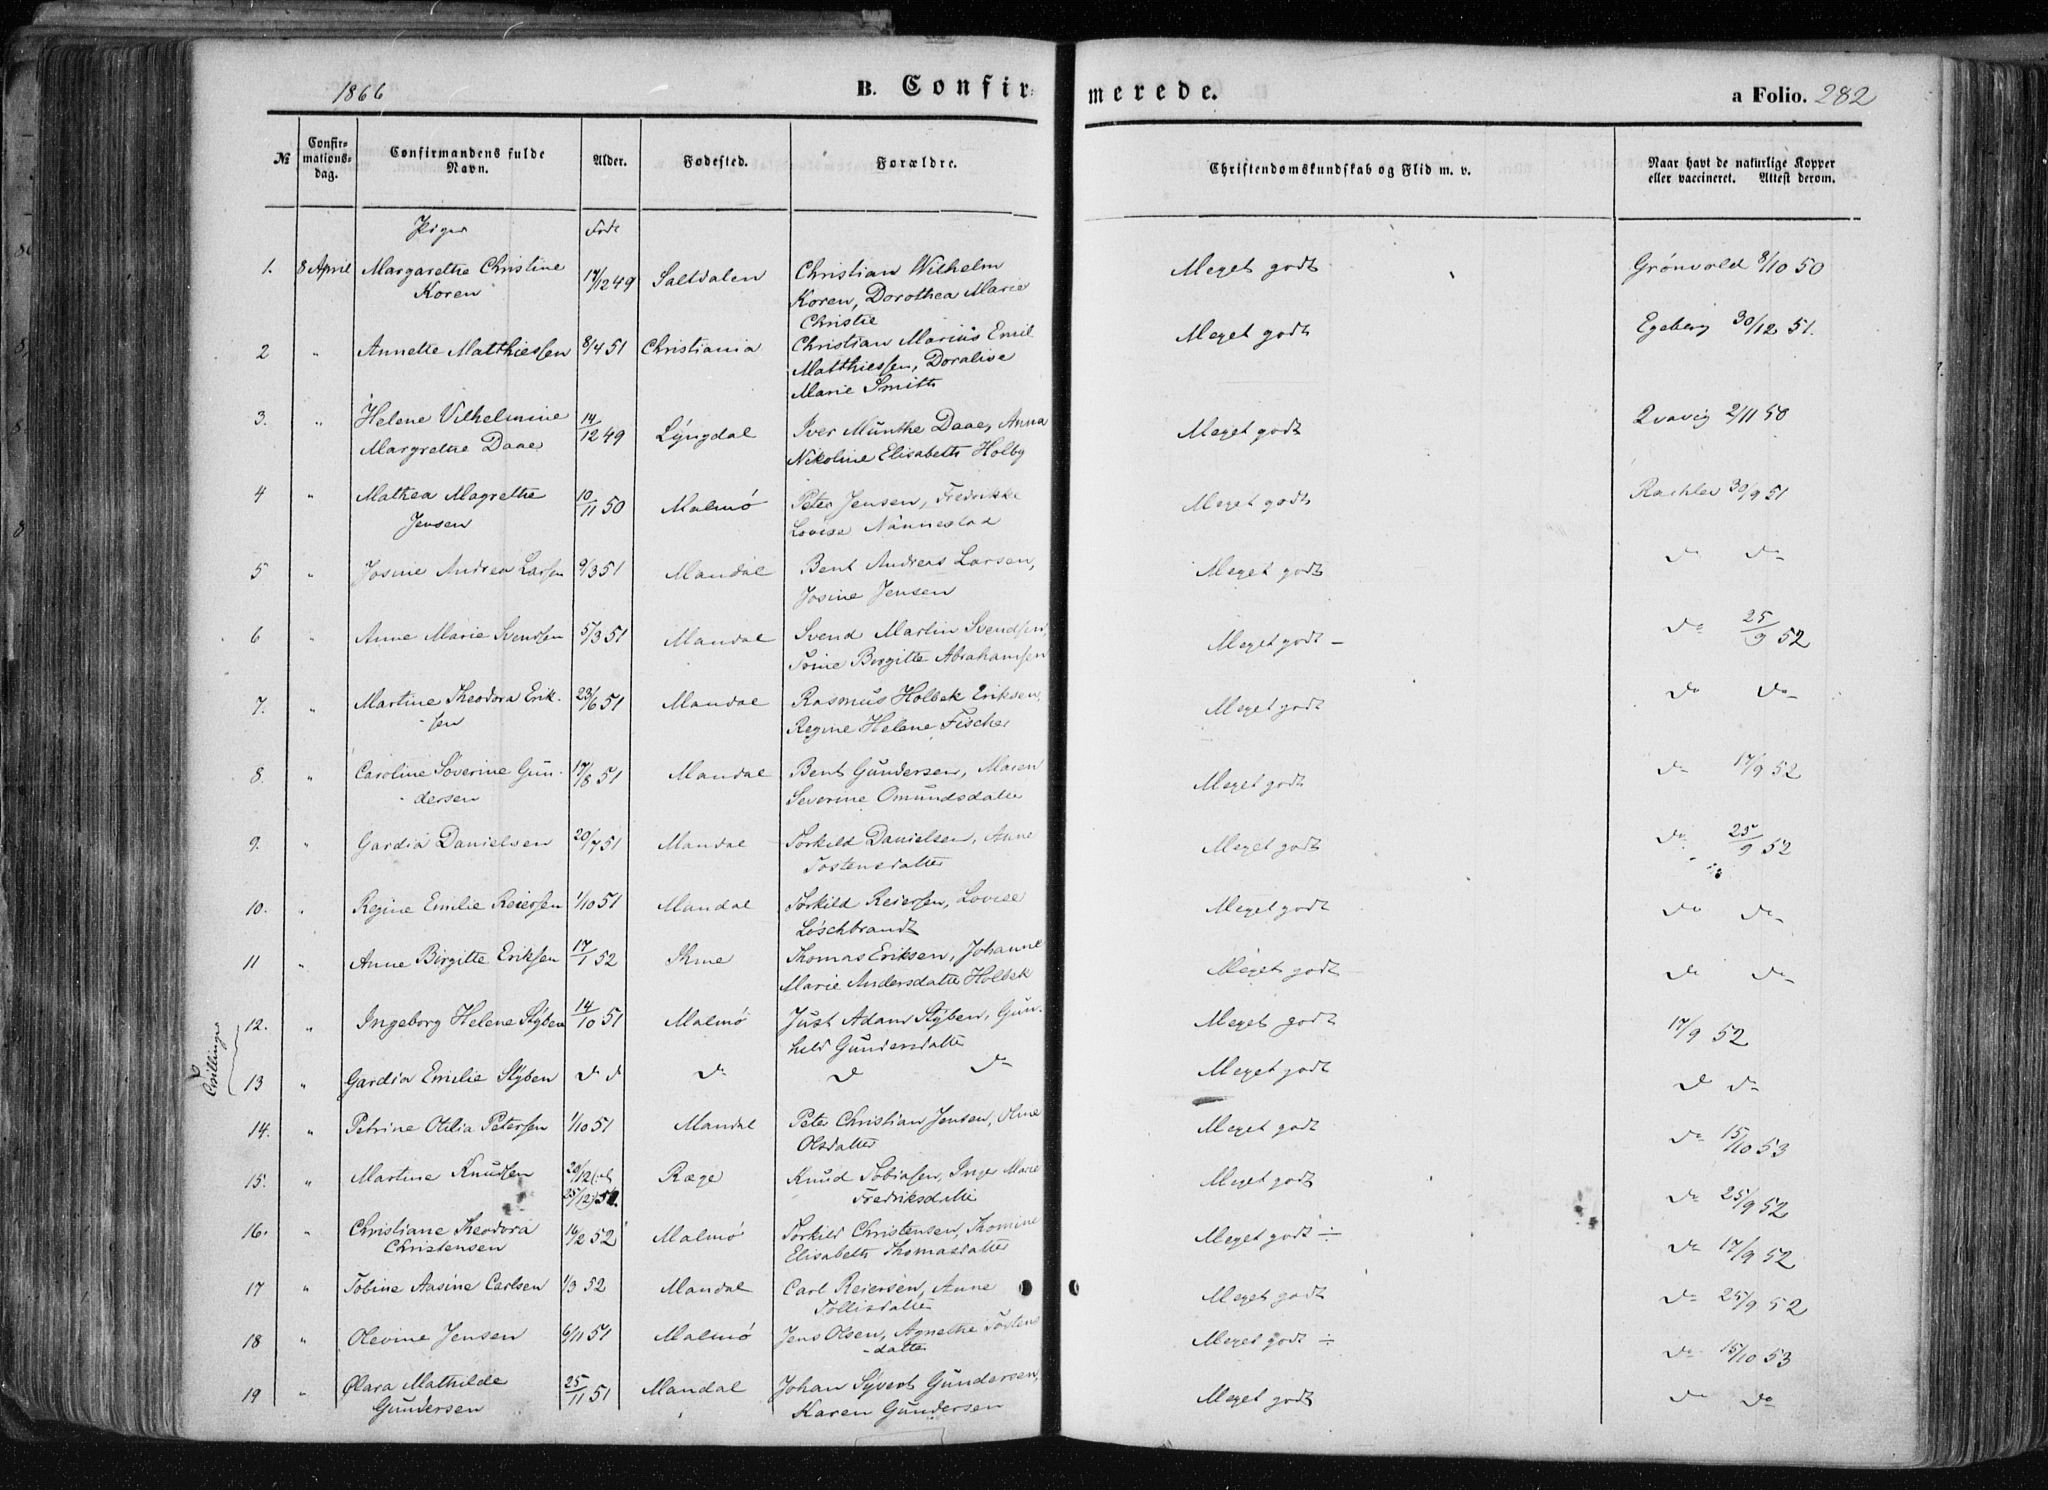 1866 B. Confirmerede. a Folio. 282
№ Confirmationsdag. Confirmandens fulde Navn. Alder. Fødested. Forældre. Christendomskundskab og Flid m. v. Naar havt de naturlige Kopper eller vaccineret. Attest derom.
Piger Født
1. 8 April Margarethe Christine 17/12 49 Saltdalen Christian Wilhelm Meget godt Grønvold 8/10 50
Koren Koren, Dorothea Marie
Christie
2 " Annette Matthiessen 8/4 51 Christiania Christian Marius Emil Meget godt Egeberg 30/12 51.
Matthiessen, Doralise
Marie Smith
3. " Helene Vilhelmine 14/12 49 Lyngdal Iver Munthe Daae, Anna Meget godt Qvavig 2/11 50
Margrethe Daae Nikoline Elisabeth Holby
4 " Mathea Magrethe 10/11 50 Malmø Peter Jensen, Fredrikke Meget godt 30/9 51
Jensen Lovise Nannestad
5 " Josine Andrea Larsen 9/3 51 Mandal Bent Andreas Larsen, Meget godt do do
Josine Jensen
6 " Anne Marie Svendsen 5/3 51 Mandal Svend Martin Svendsen, Meget godt - do 25/9 52
Birgitte Abrahamsen
7. " Martine Theodora Erik- 23/6 51 Mandal Rasmus Holbek Eriksen, Meget godt do do
-sen Regine Helene Fischer
8. " Caroline Severine Gun- 17/8 51 Mandal Bent Gundersen, Maren Meget godt do 17/9 52
-dersen Severine Omundsdatter
9. " Gardia Danielsen 20/7 51 Mandal Torkild Danielsen, Anne Meget godt do 25/9 52
Tostensdatter
10. " Regine Emilie Reiersen 1/10 51 Mandal Torkild Reiersen, Lovise Meget godt do do
Løschbrandt
11 " Anne Birgitte Eriksen 17/1 52 Ihme Thomas Eriksen, Johanne Meget godt do do
Marie Andersdatter Holbek
Tvillinger
12. " Ingeborg Helene Stÿben 14/10 51 Malmø Just Adam Stÿben, Gun- Meget godt 17/9 52
hild Gundersdatter
13 " Gardia Emilie Stÿben do do do do do Meget godt do do
14. " Petrine Otilia Petersen 1/10 51 Mandal Peter Christian Jensen, Oline Meget godt do 15/10 53
Olsdatter
15. " Martine Knudsen 20/12 Ræge Knud Tobiasen, Inger Marie Meget godt do 25/9 52
25/12 Fredriksdatter
16. " Christiane Theodora 16/2 52 Malmø Torkild Christensen, Thomine Meget godt ÷ do 17/9 52
Christensen Elisabeth Thomasdatter
17 " Tobine Aasine Carlsen 1/3 52 Mandal Carl Reiersen, Anne Meget godt do 25/9 52
Tollisdatter
18 " Olevine Jensen 6/11 51 Malmø Jens Olsen, Agnethe Tostens Meget godt ÷ do 15/10 53
-datter
19 " Olara Mathilde 25/11 51 Mandal Johan Syvert Gundersen, Meget godt do do
Gundersen Karen Gundersen